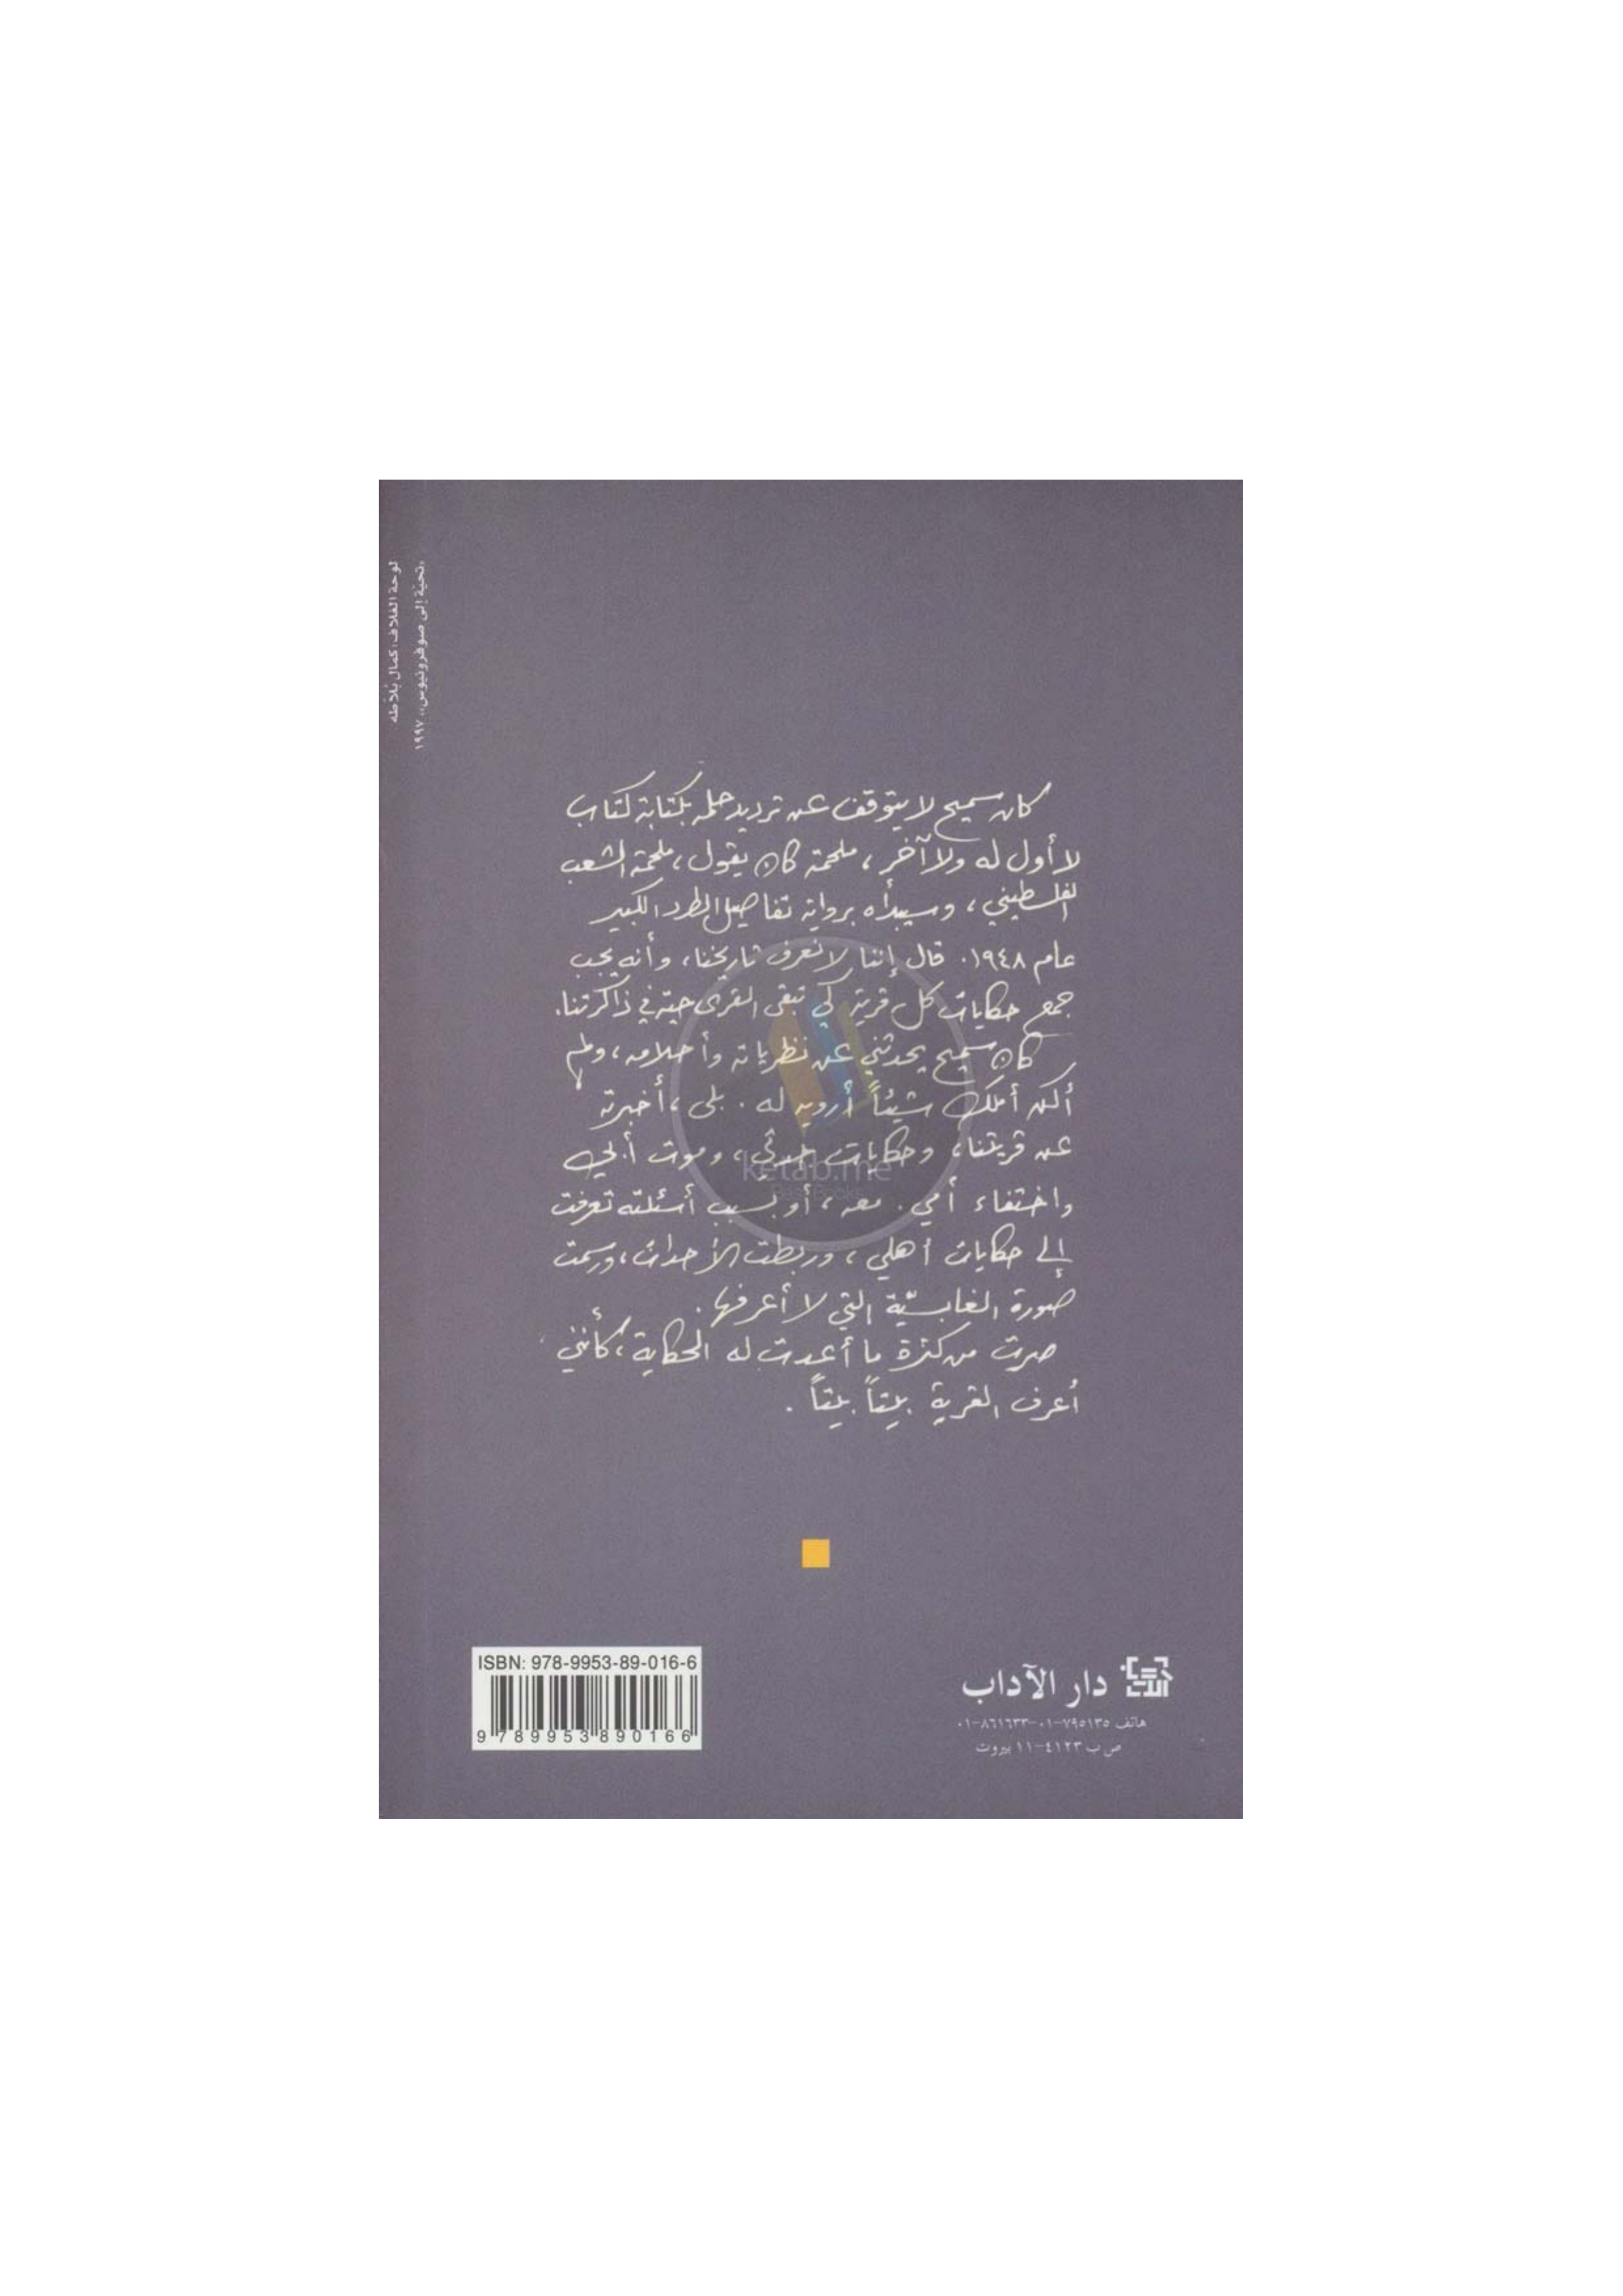 لوحة الغلاف: كمال بُلاطه
«تحيّة إلى صوفرونيوس»، ١٩٩٧
كان سميح لا يتوقف عن ترديد حلمه بكتابة كتاب
لا أول له ولا آخر، ملحمة كان يقول، ملحمة الشعب
الفلسطيني، وسيبدأه برواية تفاصيل الطرد الكبير
عام ١٩٤٨. قال إننا لا نعرف تاريخنا، وأنه يجب
جمع حكايات كل قرية كي تبقى القرى حيّة في ذاكرتنا.
كان سميح يحدثني عن نظرياته وأحلامه، ولم
أكن أملك شيئاً أرويه له. بلى، أخبرته
عن قريتنا، وحكايات جدتي، وموت أبي
واختفاء أمي. معه، أو بسبب أسئلته تعرفت
إلى حكايات أهلي، وربطت الأحداث، ورسمت
صورة الغابسيّة التي لا أعرفها.
صرت من كثرة ما أعدت له الحكاية، كأنني
أعرف القرية بيتاً بيتاً.
ketab.me
ISBN: 978-9953-89-016-6
9 789953 890166
دار الآداب
هاتف ٧٩٥١٣٥-٠١-٨٦١٦٣٣-٠١
ص ب ٤١٢٣-١١ بيروت